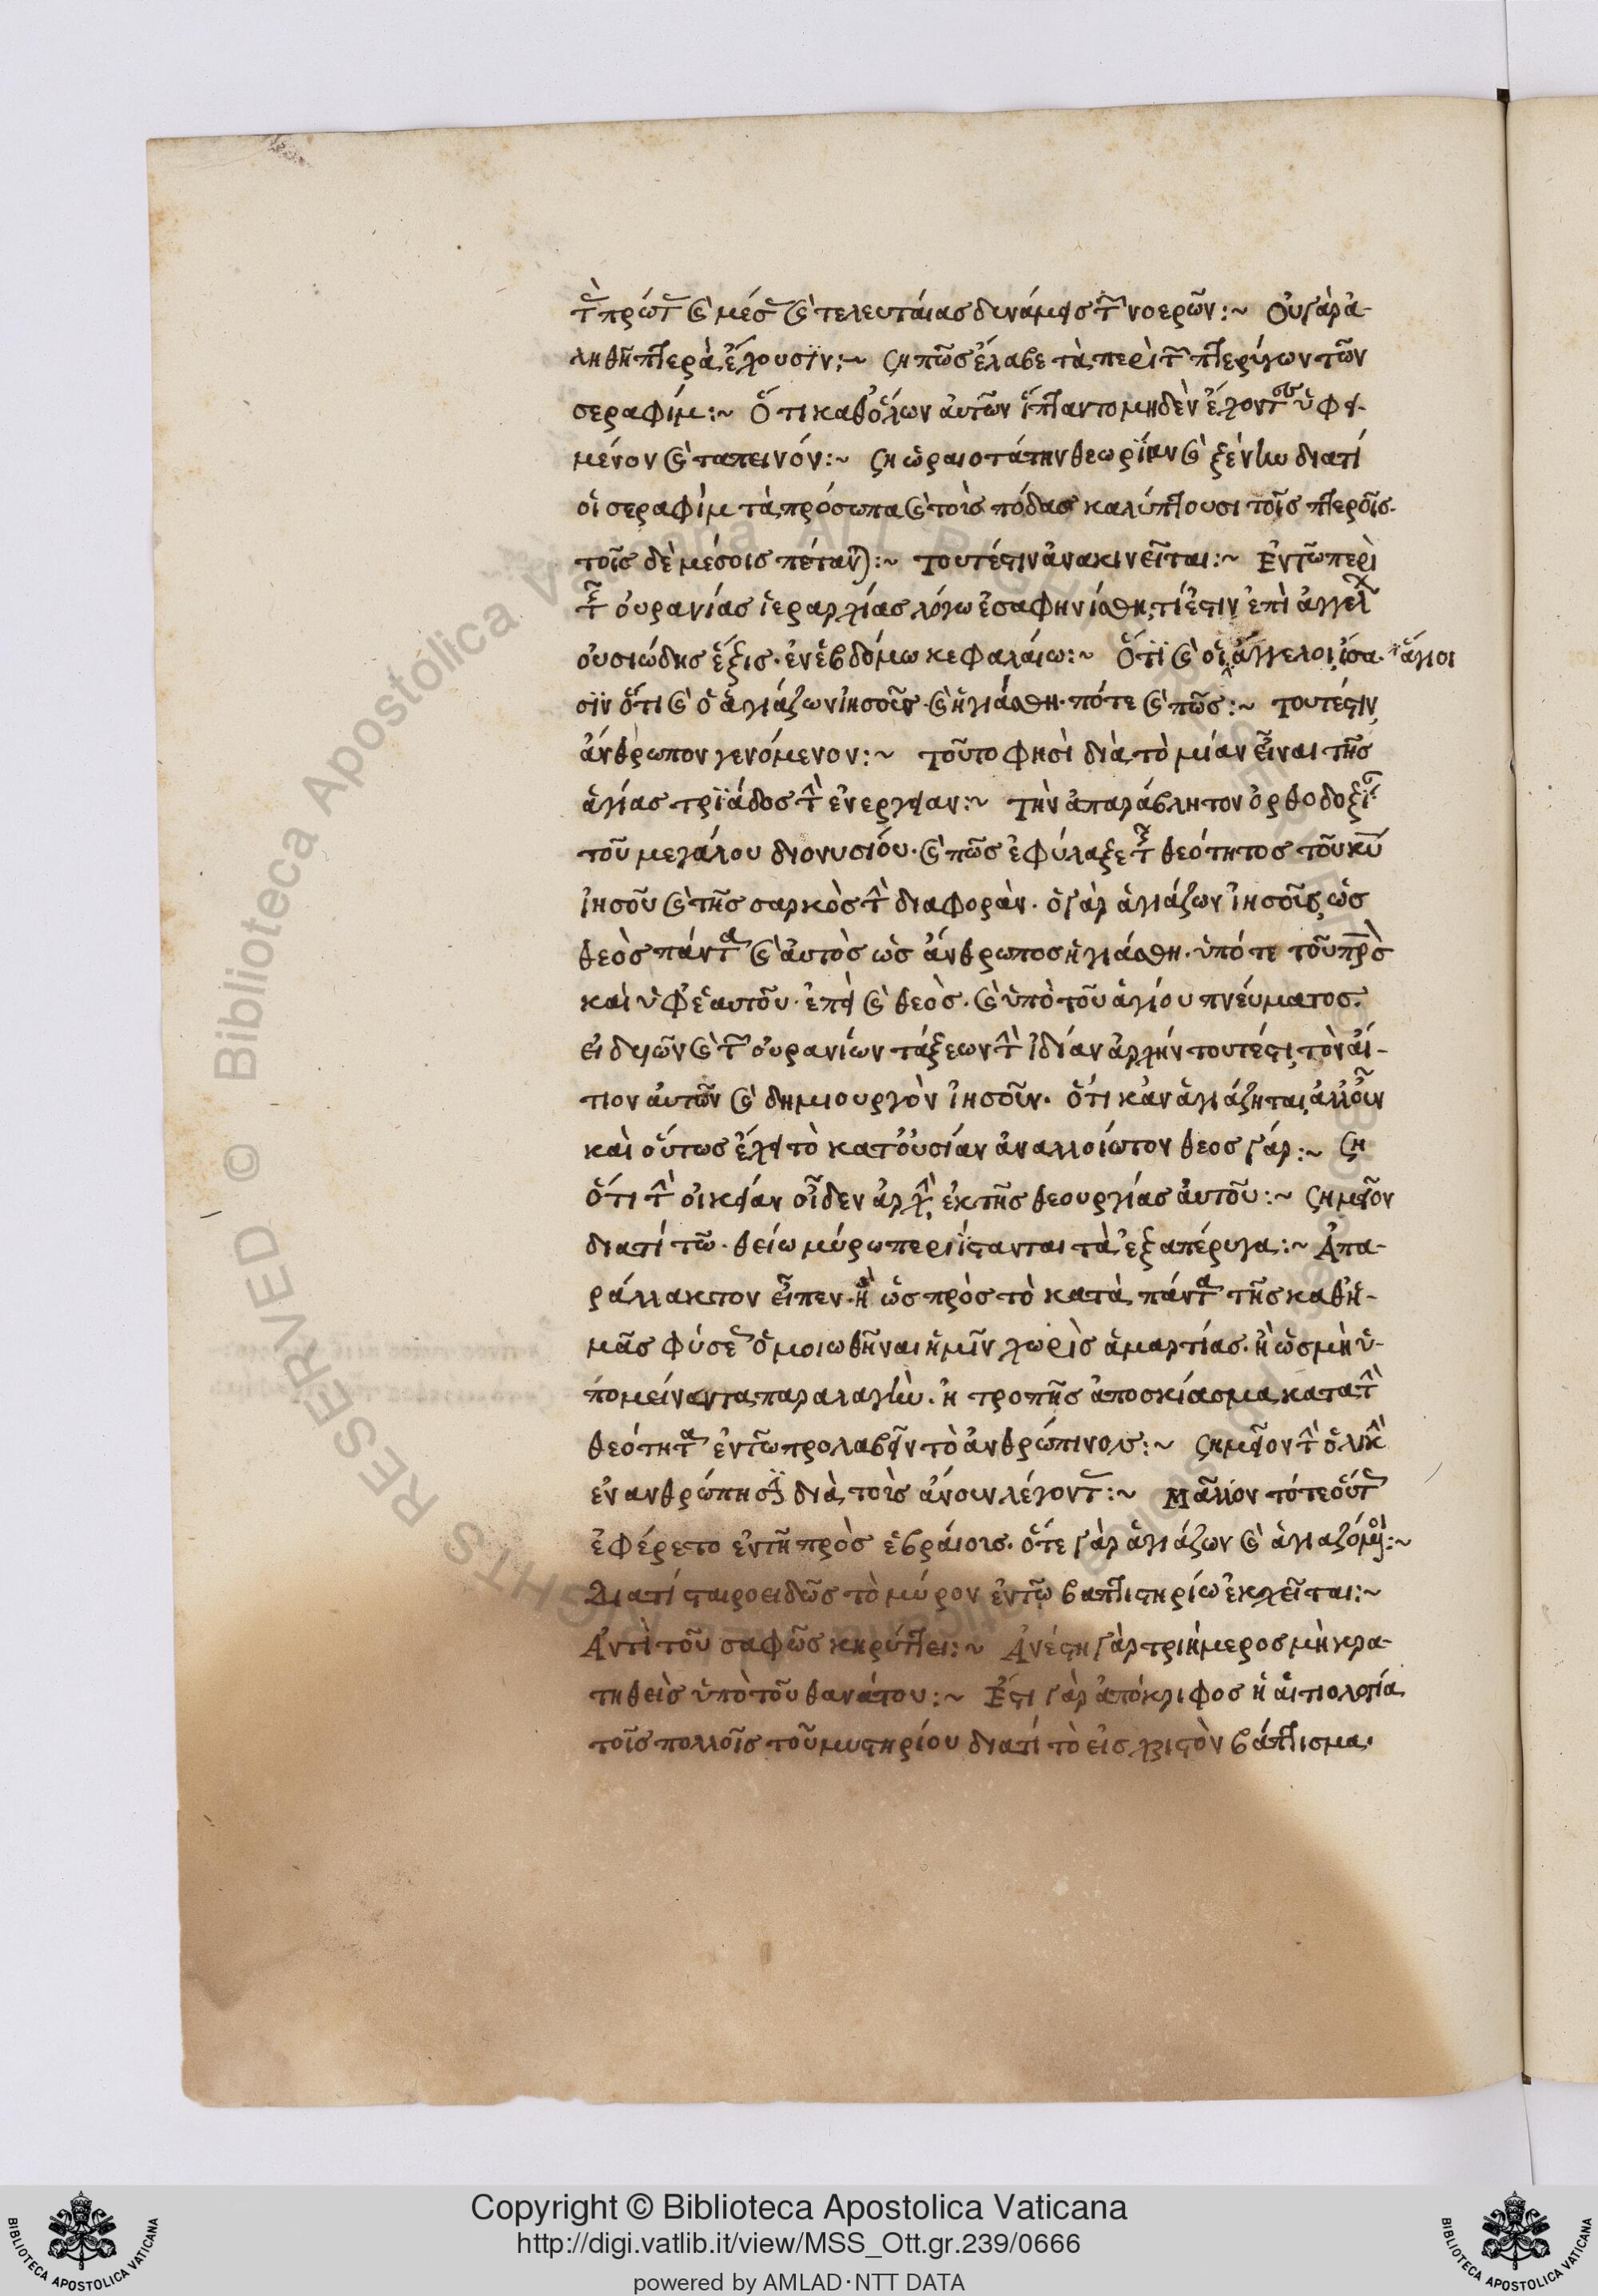 τὰς πρώτας καὶ μέσας καὶ τελευταίας δυνάμεις τῶν νοερῶν:~ Οὐ γὰρ ἀ-
ληθῆ πτερὰ ἔχουσϊν:~ ση πῶς ἔλαβε τὰ περὶ τῶν πτερύγων τῶν
σεραφίμ:~ Ὅτι καθόλων ἀυτῶν ἵπταντο μηδὲν ἔχοντες ὑφει-
μένον καὶ ταπεινόν:~ ση ὡραιοτάτην θεωρΐαν καὶ ξένην διατί
οἱ σεραφὶμ τὰ πρόσωπα καὶ τοὺς πόδας καλύπτουσι τοῖς πτεροῖς.
τοῖς δὲ μέσοις πέτανται:~ τουτέστιν ἀνακινεῖται:~ Ἐν τῶ περὶ
τῆς ὀυρανίας ἱεραρχίας λόγω ἐσαφηνίσθη, τί ἐστιν ἐπὶ ἀγγέλων
οὐσιώδης ἕξις. ἐν ἑβδόμω κεφαλαίω:~ Ὅτϊ καὶ οἱ ἄγγελοι, ἴσα. ἅγιοι
σϊν ὅτι καὶ ὁ ἁγιάζων ἰησοῦς καὶ ἡγιάσθη. πότε καὶ πῶς:~ τουτέστιν
ἄνθρωπον γενόμενον:~ τοῦτο φησὶ διὰ τὸ μίαν εἶναι τῆς
ἁγίας τρϊάδος τὴν ἐνεργειαν:~ τὴν ἀπαράβλητον ὀρθοδοξίαν
τοῦ μεγάλου διονυσίου. καὶ πῶς ἐφύλαξε τῆς θεότητος τοῦ κυ
ἰησοῦ καὶ τῆς σαρκὸς τὴν διαφοράν. ὁ γὰρ ἁγιάζων ἰησοῦς ὡς
θεὸς πάντα καὶ ἀυτὸς ὡς ἄνθρωπος ἡγιάσθη. ὑπό τε τοῦ πρς
καὶ ὑφ' ἑαυτοῦ. ἐπεὶ καὶ θεὸς. καὶ ὑπὸ τοῦ ἁγίου πνεύματος.
εἰδυιῶν καὶ τῶν οὐρανίων τάξεων τὴν ἰδίαν ἀρχὴν τουτέστι, τὸν ἀί-
τιον ἀυτῶν καὶ δημιουργὸν ἰησοῦν. ὅτι κἂν ἁγιάζηται, ἀλλ' οὖν
καὶ οὕτως ἔχει τὸ κατ' ὀυσίαν ἀναλλοίωτον θεος γάρ:~ ση
ὅτι τὴν οἰκείαν οἶδεν ἀρχὴν, ἐκ τῆς θεουργίας ἀυτοῦ:~ σημεῖον
διατί τῶ. θείω μύρω περιΐστανται τὰ ἑξαπτέρυγα:~ Ἀπα-
ράλλακτον εἶπεν. ἢ ὡς πρὸς τὸ κατὰ πάντα τῆς καθ' ἡ-
μᾶς φύσεως ὁμοιωθῆναι ἡμῖν χωρὶς ἁμαρτίας. ἢ ὡς μὴ ὑ-
πομείναντα παραλαγὴν. ἢ τροπῆς ἀποσκίασμα, κατα τὴν
θεότητα ἐν τῶ προλαβεῖν τὸ ἀνθρώπινον:~ σημεῖον τὴν ὁλικὴν
ἐν ανθρώπησιν διὰ τοὺς ἄνουν λέγοντας:~ Μᾶλλον τότε οὕτως
ἐφέρετο ἐν τῆ πρὸς ἑβράιους. ὅτε γὰρ ἁγιάζων καὶ ἁγιαζόμενοι:~
Διατί σταυροειδῶς τὸ μύρον ἐν τῶ βαπτιστηρίω ἐκχεῖται:~
Ἀντὶ τοῦ σαφῶς κηρύττει:~ Ἀνέστη γὰρ τριήμερος μὴ κρα-
τηθεὶς ὑπὸ τοῦ θανάτου:~ Ἔστι γὰρ ἀπόκρυφος ἡ ἀιτιολογία
τοῖς πολλοῖς τοῦ μυστηρίου διατί τὸ εἰς χριστὸν βάπτισμα.
Copyright © Biblioteca Apostolica Vaticana
http://digi.vatlib.it/view/MSS_Ott.gr.239/0666
powered by AMLAD·NTT DATA